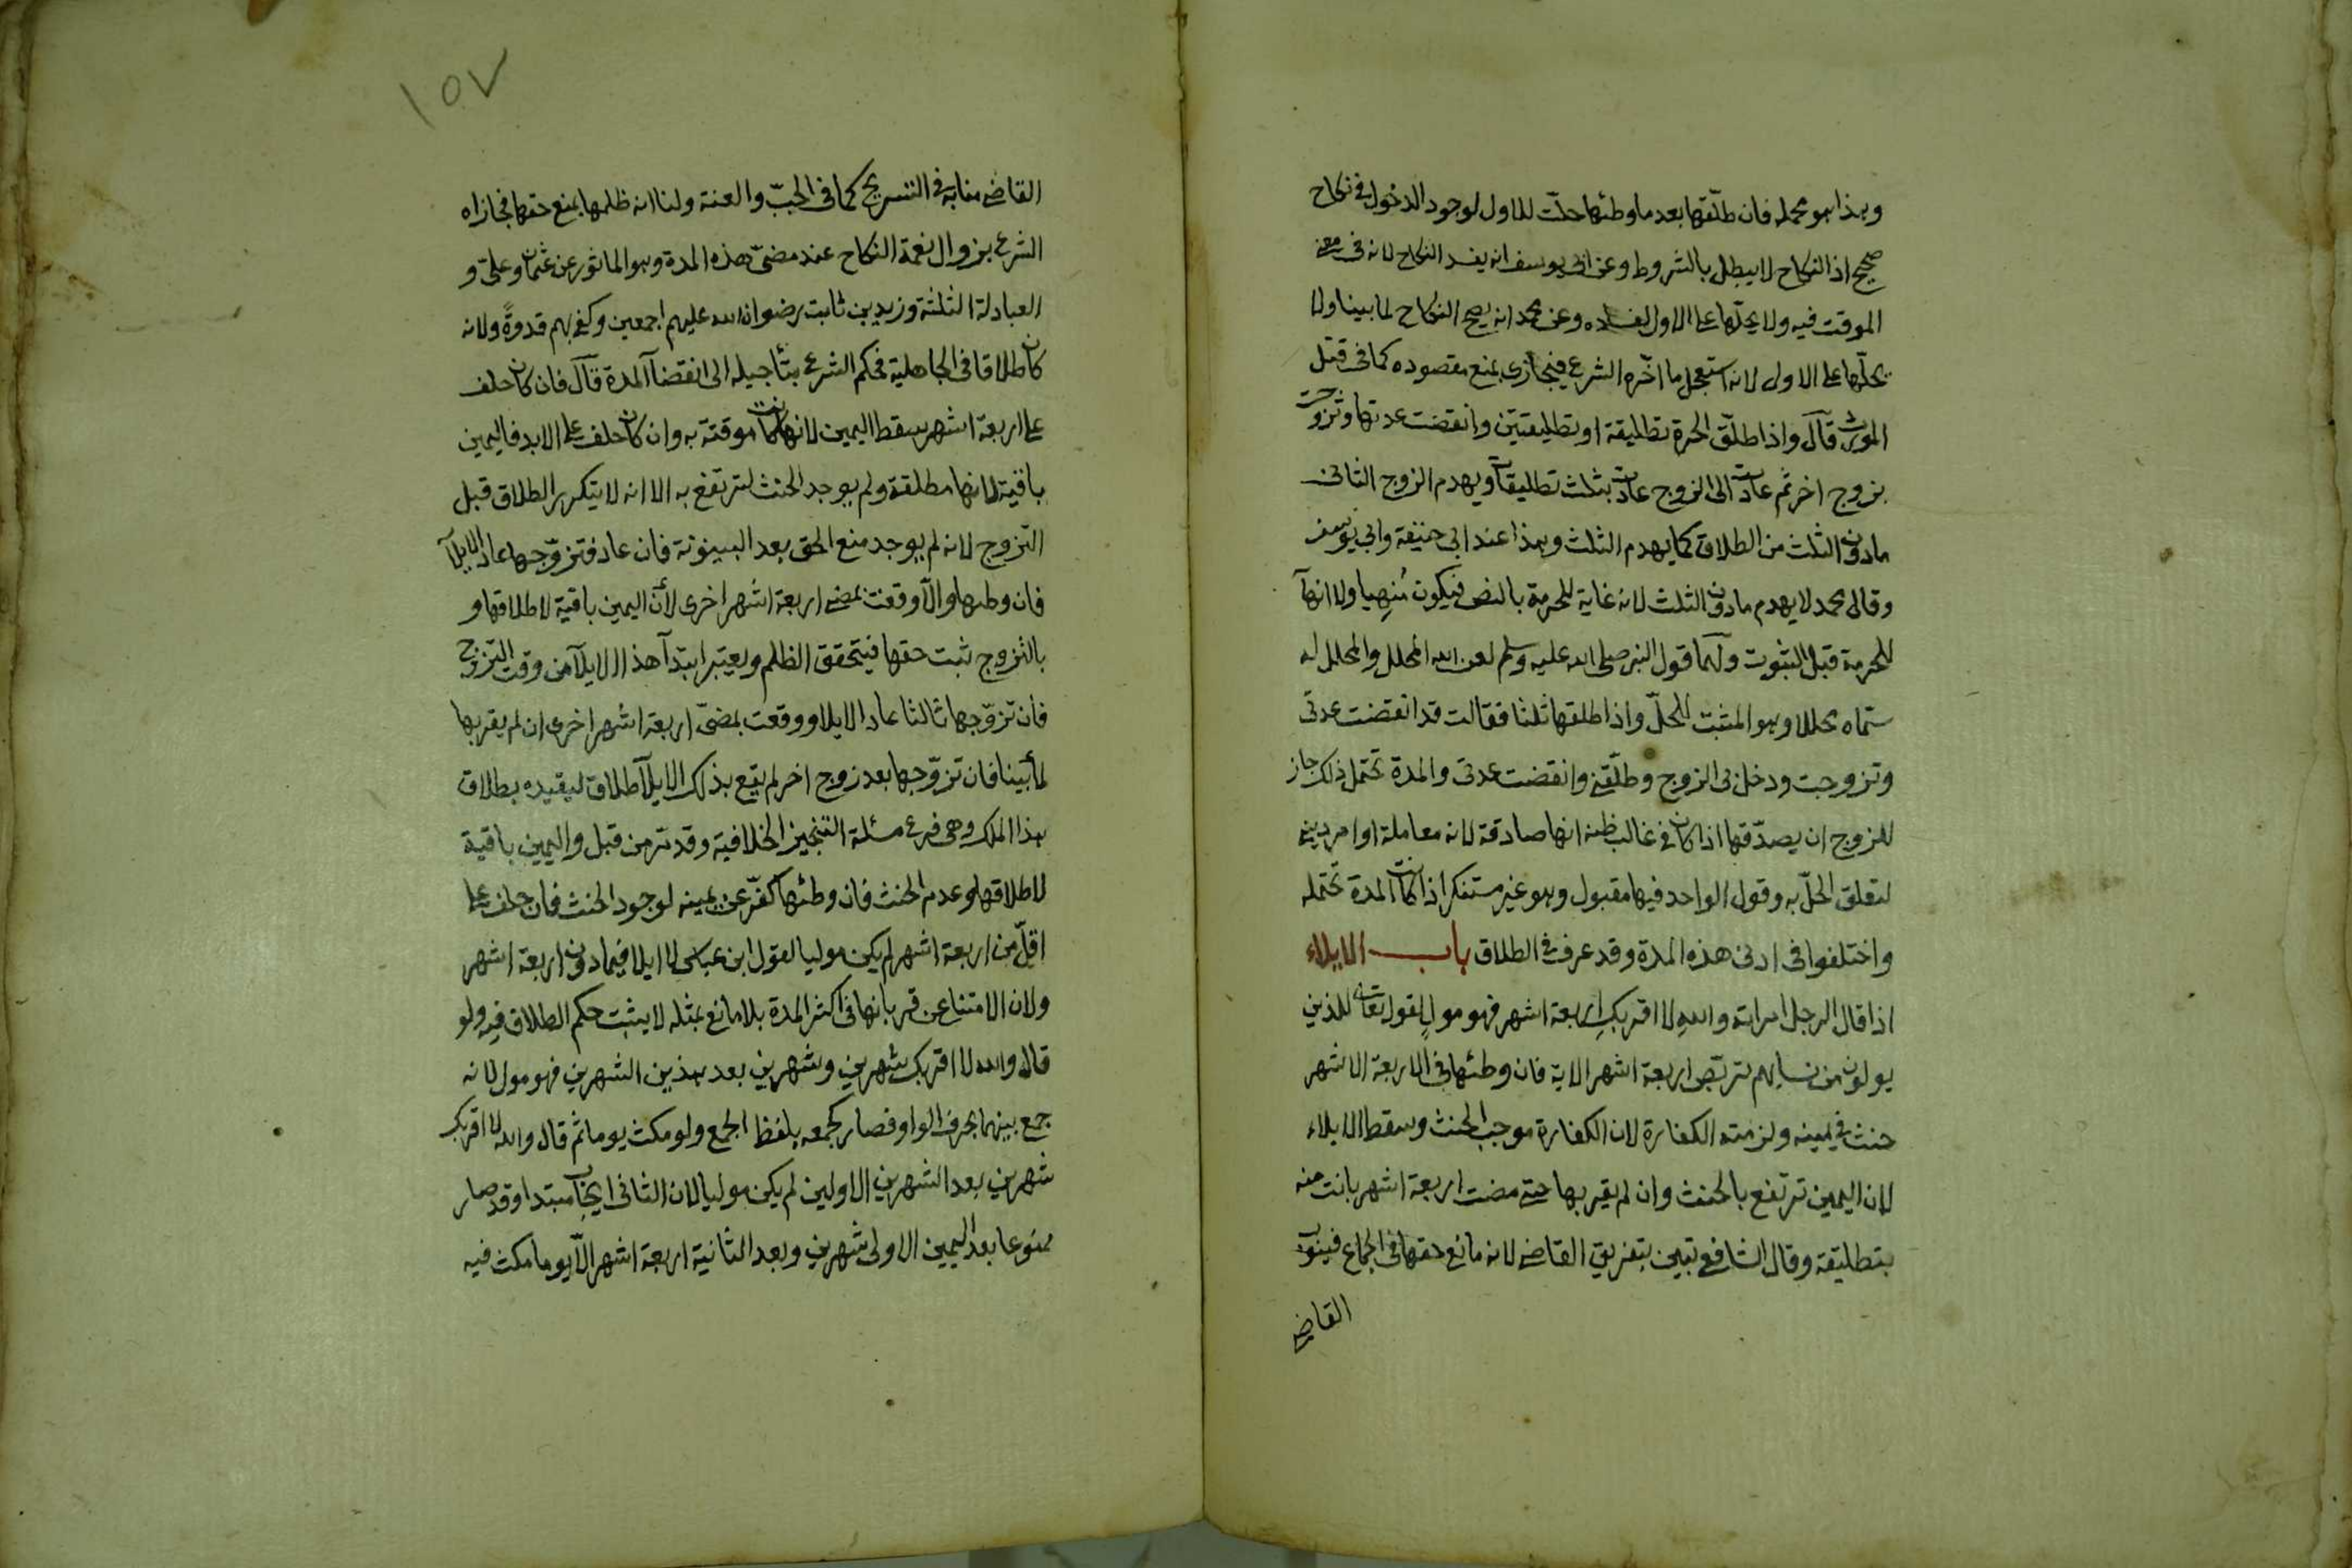 وهذا هو محمله فان طلّقها بعد ما وطئها حلّت للاول لوجود الدخول فى نكاح
صحيح اذ النكاح لا يبطل بالشروط وعن ابى يوسف انه يفسد النكاح لانه فى معنى
الموقت فيه ولا يحلّها على الاول لفساده وعن محمد انه يصح النكاح لما بينا ولا
يحلّها على الاول لانه استعجل ما اخّره الشرع فيجازى بمنع مقصوده كما فى قتل
المورث قال واذا طلّق الحرة تطليقة او تطليقتين وانقضت عدتها وتزوجت
بزوج اخر ثم عادت الى الزوج عادت بثلث تطليقات ويهدم الزوج الثانى
مادون الثلث من الطلاق كما يهدم الثلث وهذا عند ابى حنيفة وابى يوسف
وقال محمد لا يهدم مادون الثلث لانه غاية للحرمة بالنص فيكون مُنهِيا ولا انهآ
للحرمة قبل الثبوت ولهما قول النبى صلى الله عليه وسلم لعن الله المحلل والمحلل له
سمّاه محللا وهو المثبت للحلّ واذا طلقها ثلثا فقالت قد انقضت عدتى
وتزوجت ودخل بى الزوج وطلّقنى وانقضت عدتى والمدة تحتمل ذلك جاز
للزوج ان يصدّقها اذا كان فى غالب ظنه انها صادقة لانه معاملة او امر دينى
لتعلق الحلّ به وقول الواحد فيها مقبول وهو غير مستنكر اذا كانت المدة تحتمله
واختلفوا فى ادنى هذه المدة وقد عرف فى الطلاق باب الايلاء
اذا قال الرجل امراته والله لا اقربكِ اربعة اشهر فهو مولٍ لقوله تعالى للذين
يولون من نسايهم تربّص اربعة اشهر الاية فان وطئها فى الاربعة الاشهر
حنث فى يمينه ولزمته الكفارة لان الكفارة موجب الحنث وسقط الايلاء
لان اليمين ترتفع بالحنث وان لم يقربها حتى مضت اربعة اشهر بانت منه
بتطليقة وقال الشافعى تبين بتفريق القاضى لانه مانع حقها فى الجماع فينوب
القاضى
١٥٧
القاضى منابه فى التسريح كما فى الجبّ والعنة ولنا انه ظلمها بمنع حقها فجازاه
الشرع بزوال نعمة النكاح عند مضىّ هذه المدة وهو الماثور عن عثمان وعلىّ و
العبادلة الثلثة وزيد بن ثابت رضوان الله عليهم اجمعين وكفى بهم قدوةً ولانه
كان طلاقا فى الجاهلية فحكم الشرع بتأجيله الى انقضآ المدة قال فان كان حلف
على اربعة اشهر سقط اليمين لانها كانت موقتة به وان كان حلف على الابد فاليمين
باقية لانها مطلقة ولم يوجد الحنث لترتفع به الا انه لا يتكرر الطلاق قبل
التزوج لانه لم يوجد منع الحق بعد البينونة فان عاد فتزوّجها عاد الايلآ
فان وطئها والّا وقعت بمضى اربعة اشهر اخرى لأن اليمين باقية لاطلاقها و
بالتزوج ثبت حقها فيتحقق الظلم ويعتبر ابتدآ هذا الايلآ من وقت التزوج
فان تزوّجها ثالثا عاد الايلا ووقعت بمضىّ اربعة اشهر اخرى ان لم يقربها
لما بينا فان تزوّجها بعد زوج اخر لم يقع بذلك الايلآ طلاق ليقيده بطلاق
هذا الملك وهى فرع مسئلة التنجيز الخلافية وقد مرّ من قبل واليمين باقية
لاطلاقها وعدم الحنث فان وطئها كفّر عن يمينه لوجود الحنث فان حلف على
اقلّ من اربعة اشهر لم يكن موليا لقول ابن عباس لا ايلا فيما دون اربعة اشهر
ولان الامتناع عن قربانها فى اكثر المدة بلا مانع بمثله لا يثبت حكم الطلاق فيه ولو
قال والله لا اقربك شهرين وشهرين بعد هذين الشهرين فهو مول لانه
جمع بينهما بحرف الواو فصار كجمعه بلفظ الجمع ولو مكث يوما ثم قال والله لا اقربك
شهرين بعد الشهرين الاولين لم يكن موليا لان الثانى ايجاب مبتدا وقد صار
ممنوعا بعد اليمين الاولى شهرين وبعد الثانية اربعة اشهر الّا يوما مكث فيه